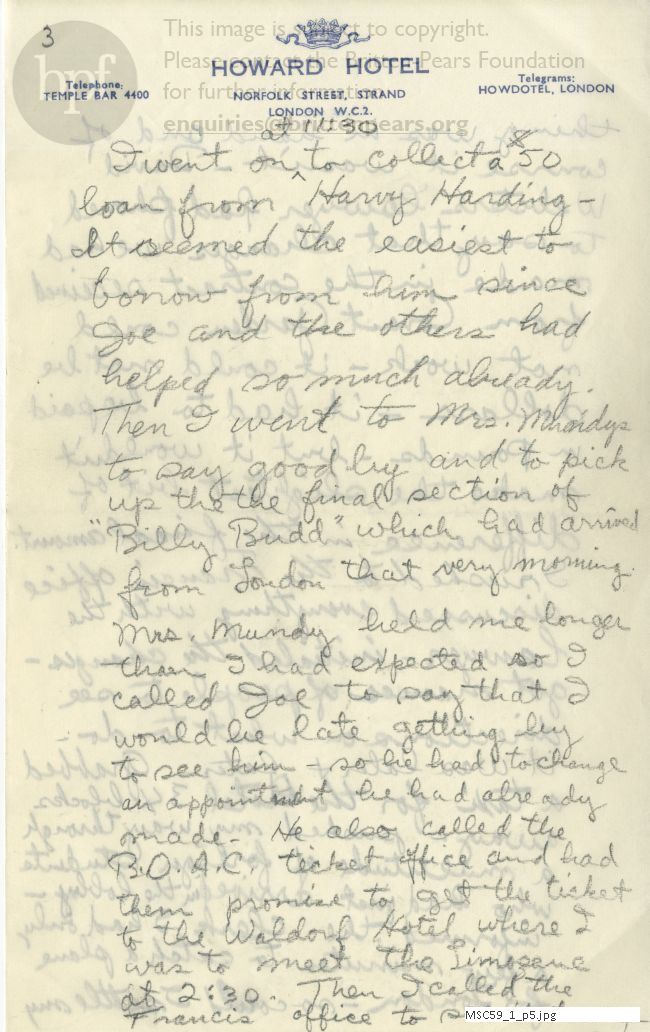 3
This image is subject to copyright.
Please contact the Britten-Pears Foundation
for further information
enquiries@brittenpears.org
bpf
HOWARD HOTEL
Telephone:
TEMPLE BAR 4400
NORFOLK STREET, STRAND
LONDON W.C.2.
Telegrams:
HOWDOTEL, LONDON
at 11:30
I went on to collect a $50
loan from Harvy Harding –
It seemed the easiest to
borrow from him since
Joe and the others had
helped so much already.
Then I went to Mrs. Mundys
to say good by and to pick
up the the final section of
"Billy Budd" which had arrived
from London that very morning.
Mrs. Mundy held me longer
than I had expected so I
called Joe to say that I
would be late getting by
to see him – so he had to change
an appointment he had already
made. He also called the
B.O.A.C. ticket office and had
them promise to get the ticket
to the Waldorf Hotel where I
was to meet the limosene
at 2:30. Then I called the
Francis office to
MSC59_1_p5.jpg